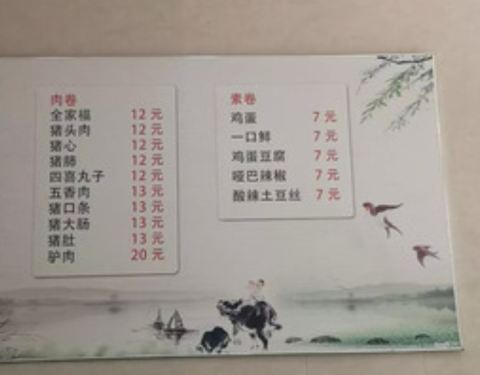 肉卷
全家福 12 元
猪头肉 12 元
猪心 12 元
猪肺 12 元
四喜丸子 12 元
五香肉 13 元
猪口条 13 元
猪大肠 13 元
猪肚 13 元
驴肉 20 元
素卷
鸡蛋 7 元
一口鲜 7 元
鸡蛋豆腐 7 元
哑巴辣椒 7 元
酸辣土豆丝 7 元